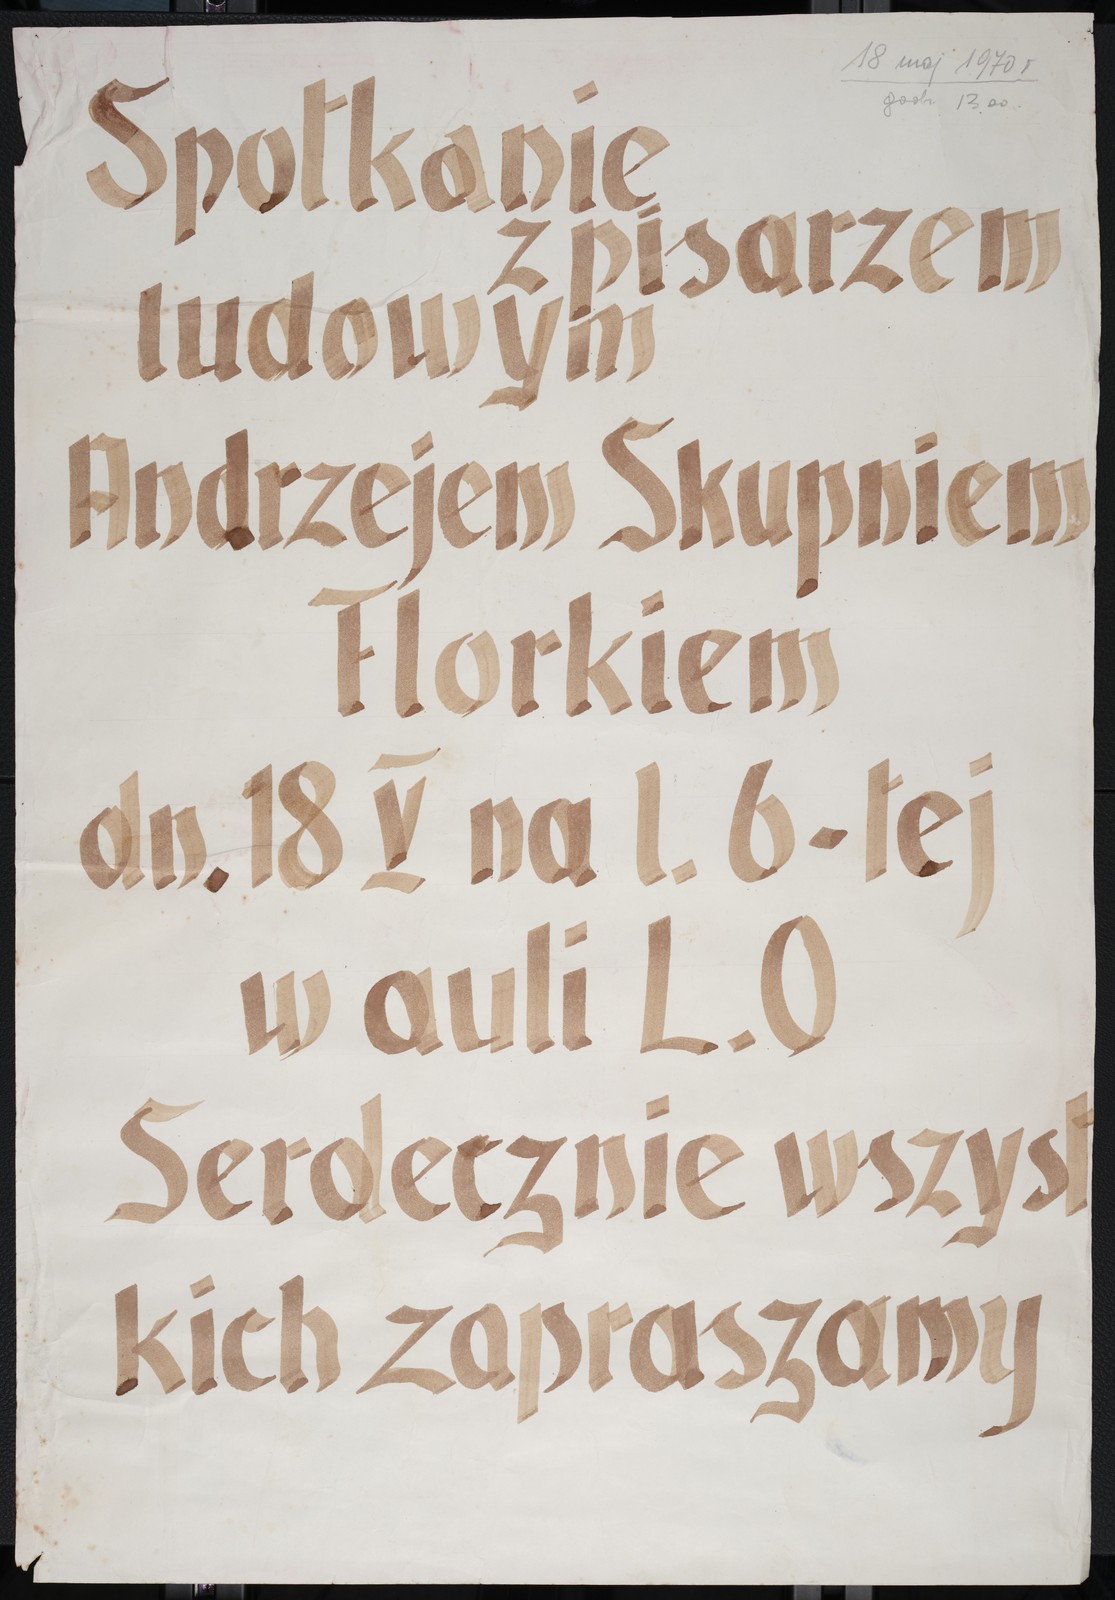 18 maj 1970 r
godz. 13.00.
Spotkanie
z pisarzem
ludowym
Andrzejem Skupniem
Florkiem
dn. 18 V na l. 6-tej
w auli L.O
Serdecznie wszyst
kich zapraszamy